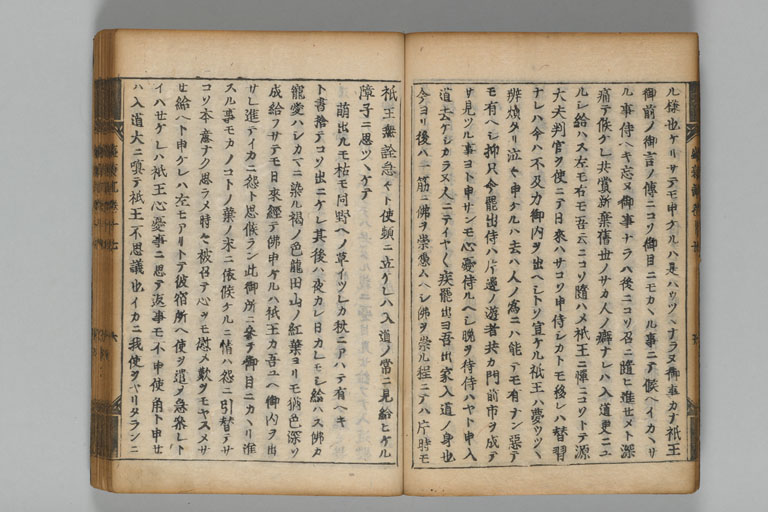 ル様也ケリサテモ申ケルハ是ハウツヽナラヌ御事カナ祇王
御前ノ御言ノ傳ニコソ御目ニモカヽル事ニテ候ヘイカヽサ
ル事侍ヘキ忘ヌ御事ナラハ後ニコソ召ニ隨ヒ進セメト深
痛テ候ケレ共賞新棄舊世ノサカ人ノ癖ナレハ入道更ニユ
ルシ給ハス左モ右モ吾云ニコソ隨ハメ祇王ニ憚ニコソトテ源
大夫判官ヲ使ニテ日來ハサコソ申侍シカトモ移レハ替習
ナレハ今ハ不及力御内ヲ出ヘシトソ宣ケル祇王ハ夢ウツヽ
辨煩タリ泣々申ケルハ去ハ人ノ爲ニハ能テモ有ナン惡テ
モ有ヘシ抑只今罷出侍ハ片邊ノ遊者共カ門前市ヲ成テ
サ見ツル事ヨト申サンモ心憂侍ルヘシ晩ヲ待侍ハヤト申入
道去ケシカラメ人ニテイヤ〳〵疾罷出ヨ吾出家入道ノ身也
今ヨリ後ハ一筋ニ佛ヲ崇憑ムヘシ佛ヲ崇ル程ニテハ片時モ
祇王無詮急々ト使頻ニ立ケレハ入道ノ常ニ見給ヒケル
障子ニ思ツヽケテ
萌出ルモ枯モ同シ野ヘノ草イツレカ秋ニアハテ有ヘキ
ト書捨テコソ出ニケレ其後ハ夜カレ日カレモシ給ハス佛カ
寵愛ハシカマニ染ル褐ノ色龍田山ノ紅葉ヨリモ猶色深ソ
成給フサテモ日來經テ佛申ケルハ祇王カ吾ユヘ御内ヲ出
サレ進テイカニ怨ト思候ラン此御所ニ參テ御目ニカヽリ進
スル事モカノコトノ葉ノ末ニ依候ケルニ情ハ怨ニ引替テサ
コソ本意ナク思ラメ時々被召テ心ヲモ慰メ歎ヲモヤスメサ
セ給ヘト申ケレハ左モアリトテ彼宿所ヘ使ヲ遣メ急參レト
イハセケレハ祇王心憂事ニ思テ返事モ不申使角ト申セ
ハ入道大ニ嗔テ祇王不思議也イカニ我使ヲヤリタランニ